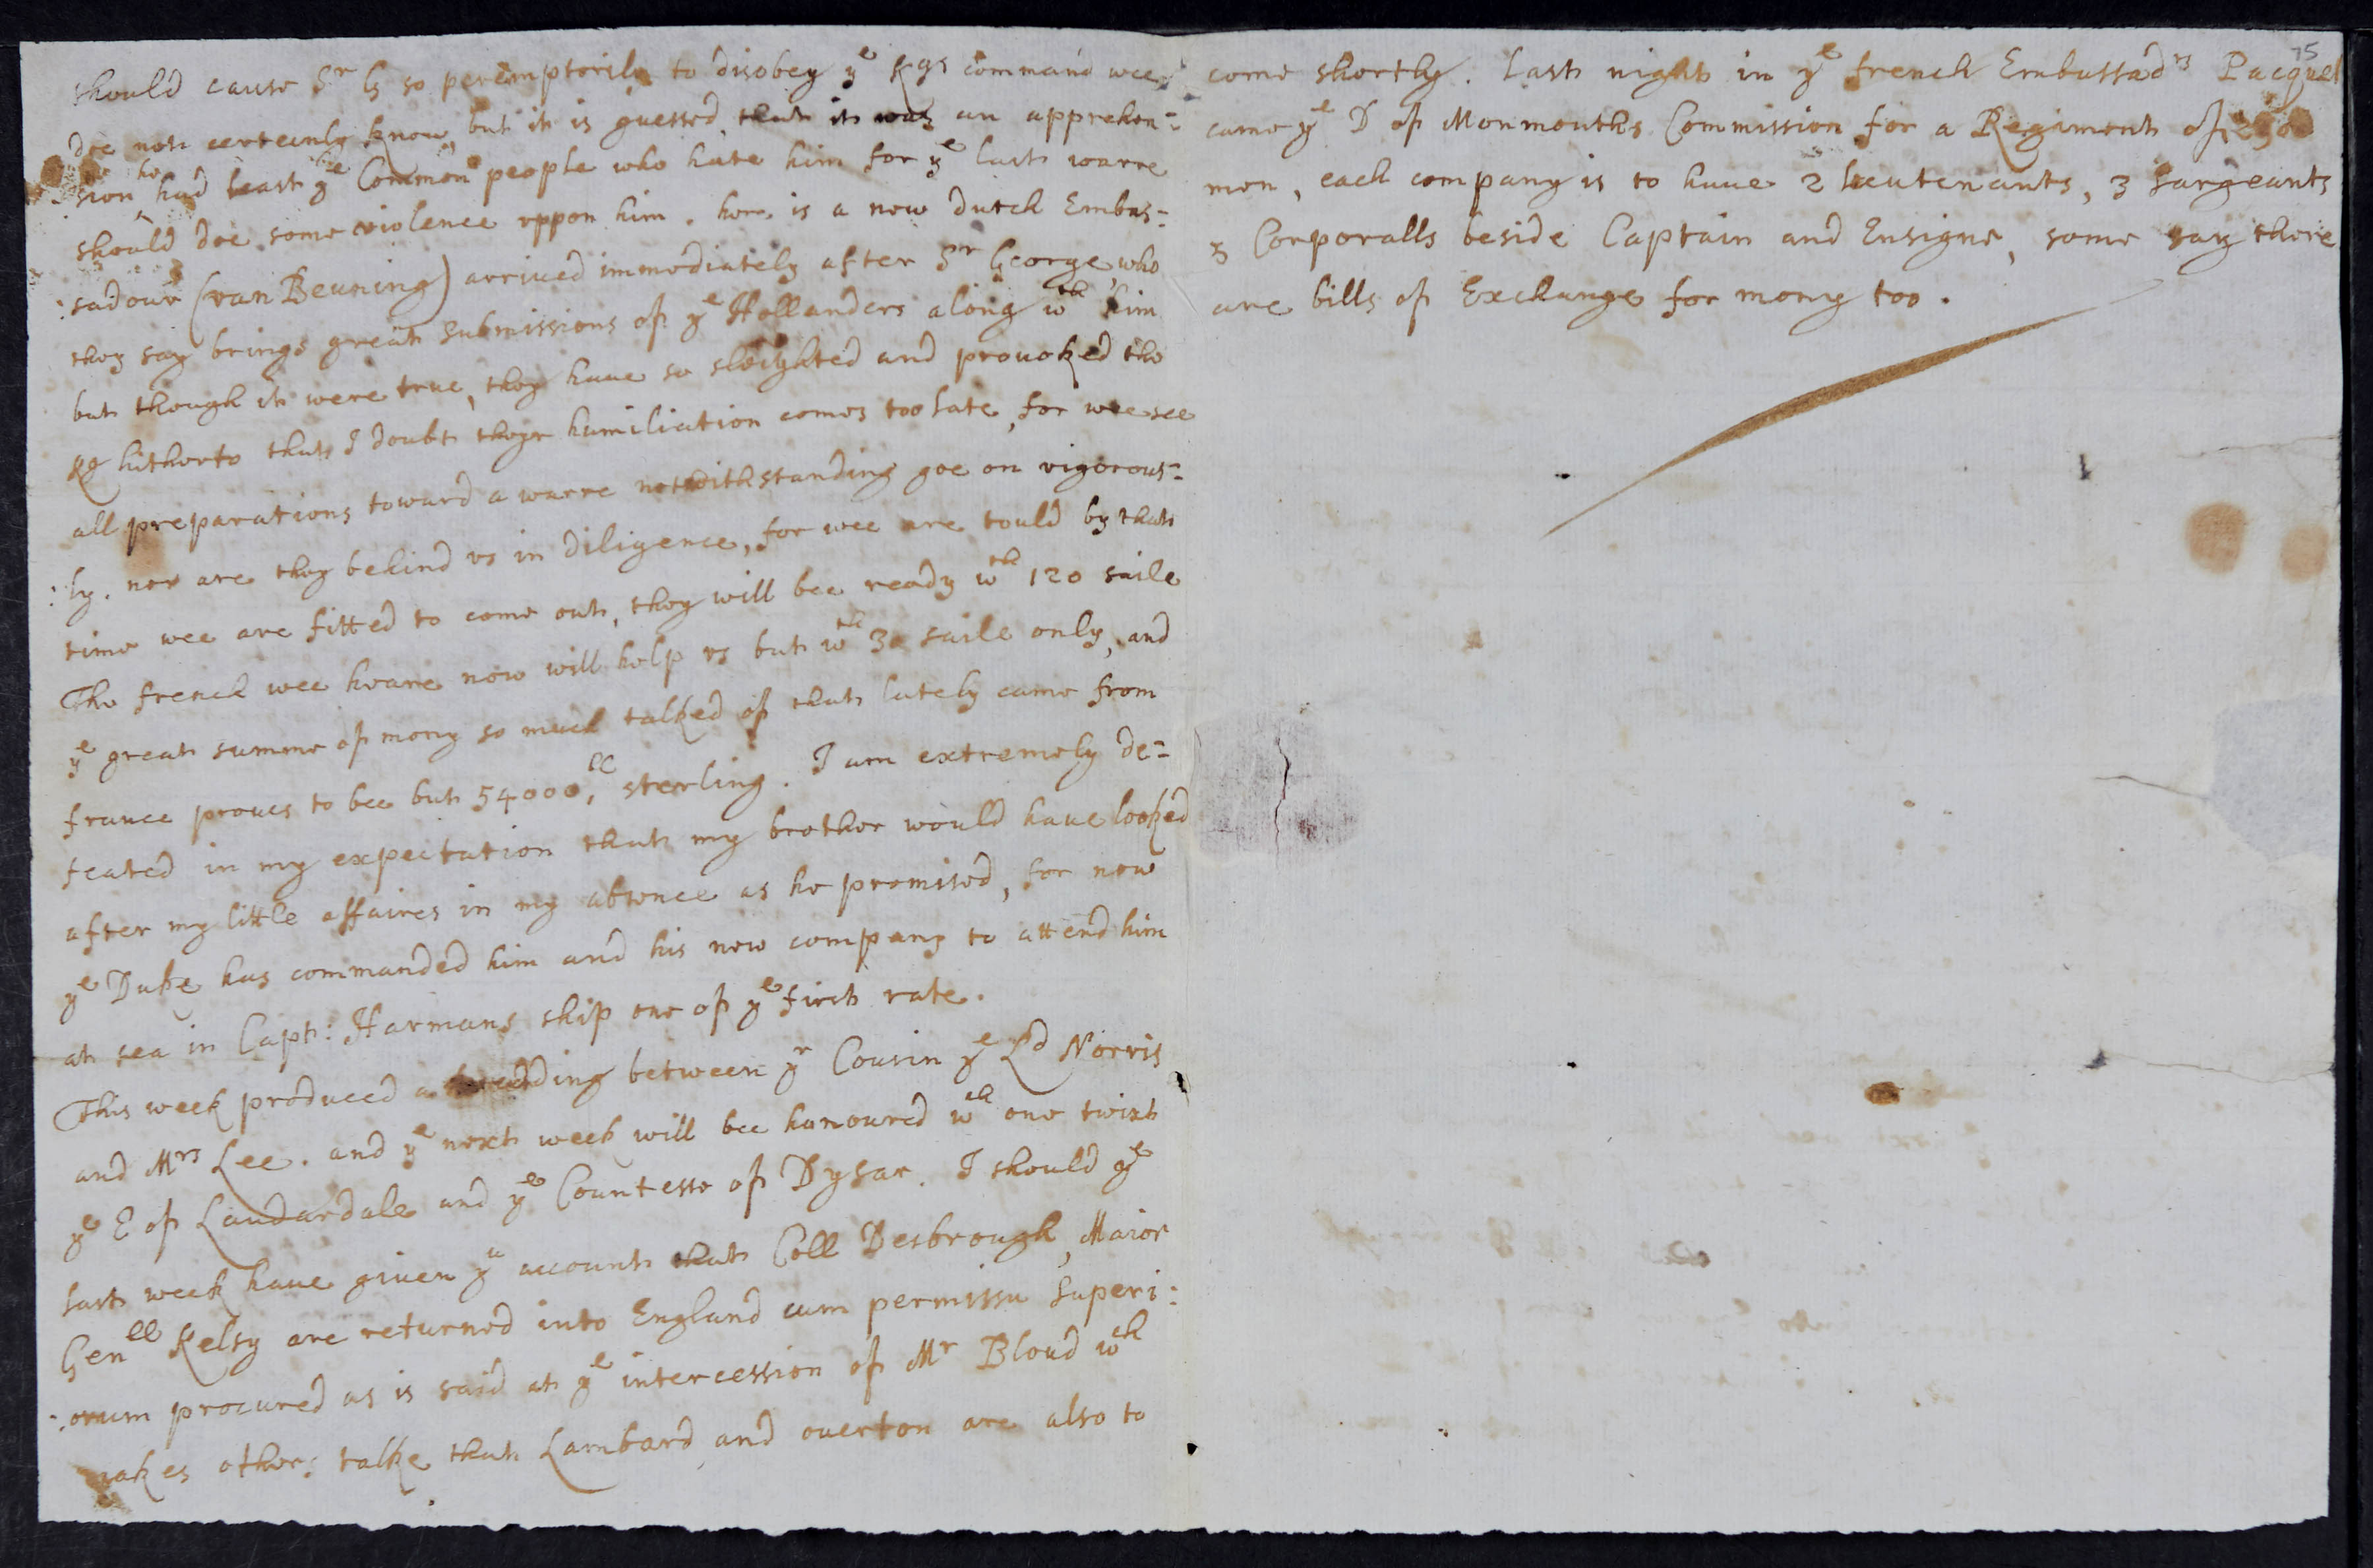 should cause Sr G so peremptorily to disobey ye Kgs command wee
doe not certeinly know, but it is guessed, that it was an apprehen=
:sion he had least ye Common people who hate him for ye last warre
should doe some violence uppon him. here is a new dutch Embas=
:sadour (van Beuning) arrived immediately after Sr George, who
they say brings great submissions of ye Hollanders along wth him
but though it were true, they haue so sleighted and prouoked the
Kg hitherto that I doubt theyr humiliation comes too late, for wee see
all preparations toward a warre notwithstanding goe on vigorous=
:ly. nor are they behind us in diligence, for wee are tould by that
time wee are fitted to come out, they will bee ready wth 120 saile
The french wee heare now will help us but wth 30 saile only, and
ye great summe of mony so much talked of that lately came from
france proues to bee but 54000,ll sterling. I am extremely de=
feated in my expectation that my brother would haue looked
after my little affaires in my absence as he promised, for now
ye Duke has commanded him and his new company to attend him
at sea in Capt: Harmans ship one of ye first rate.
This week produced a wedding between yr Cousin ye Ld Norris
and Mrs Lee. and ye next week will bee honoured wth one twixt
ye E of Laudardale and ye Countesse of Dysar. I should ye
last week haue giuen yu account that Coll Desbrough, Maior
Genll Kelsy are returned into England cum permissu Superi:
:orum procured as is said at ye intercession of Mr Bloud wch
makes other: talke that Lambard and ouerton are also to
75
come shortly. Last night in ye french Embassadrs Pacquet
came ye D of Monmouths Commission for a Regiment of
men, each company is to haue 2 lieutenants, 3 Sargeants
3 Corporalls beside Captain and Ensigne, some say there
are bills of Exchange for mony too.